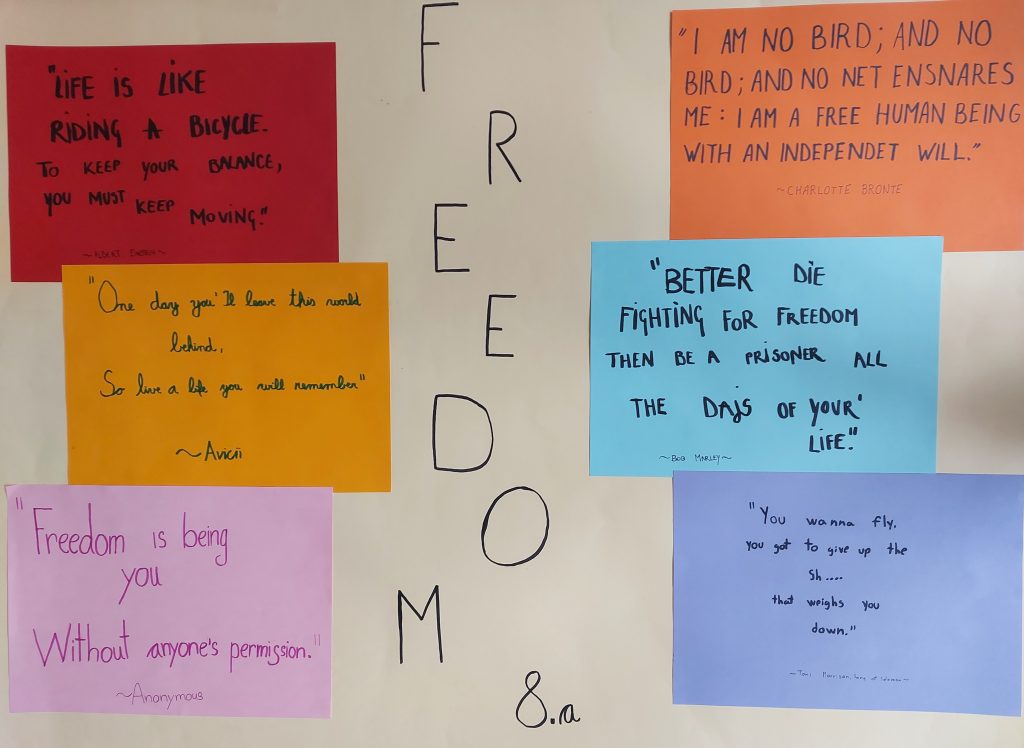 "LIFE IS LIKE
RIDING A BICYCLE.
TO KEEP YOUR BALANCE,
YOU MUST KEEP MOVING."
~ALBERT EINSTEIN~
"One day you'll leave this world
behind,
So live a life you will remember"
~Avicii
"Freedom is being
you
Without anyone's permission."
~Anonymous
F
R
E
E
D
O
M
8.a
"I AM NO BIRD; AND NO
BIRD; AND NO NET ENSNARES
ME: I AM A FREE HUMAN BEING
WITH AN INDEPENDET WILL."
~CHARLOTTE BRONTE
"BETTER DIE
FIGHTING FOR FREEDOM
THEN BE A PRISONER ALL
THE DAYS OF YOUR'
LIFE."
~BOB MARLEY~
"You wanna fly,
you got to give up the
sh....
that weighs you
down."
~Toni Morrison, Song of